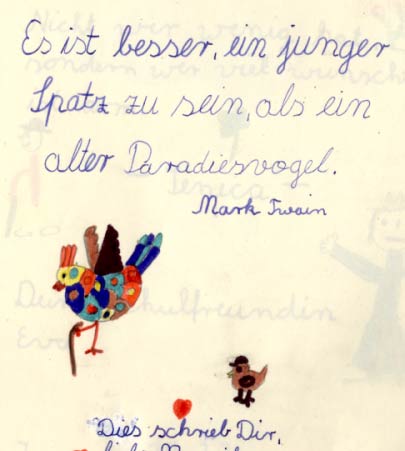 Es ist besser, ein junger
Spatz zu sein, als ein
alter Paradiesvogel.
Mark Twain
Dies schrieb Dir,